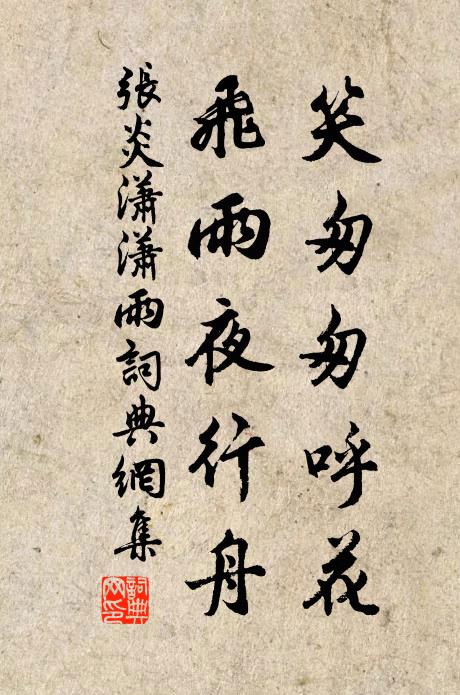 笑匆匆呼花
飛雨夜行舟
張炎瀟瀟雨詞典網集
詞典
网印